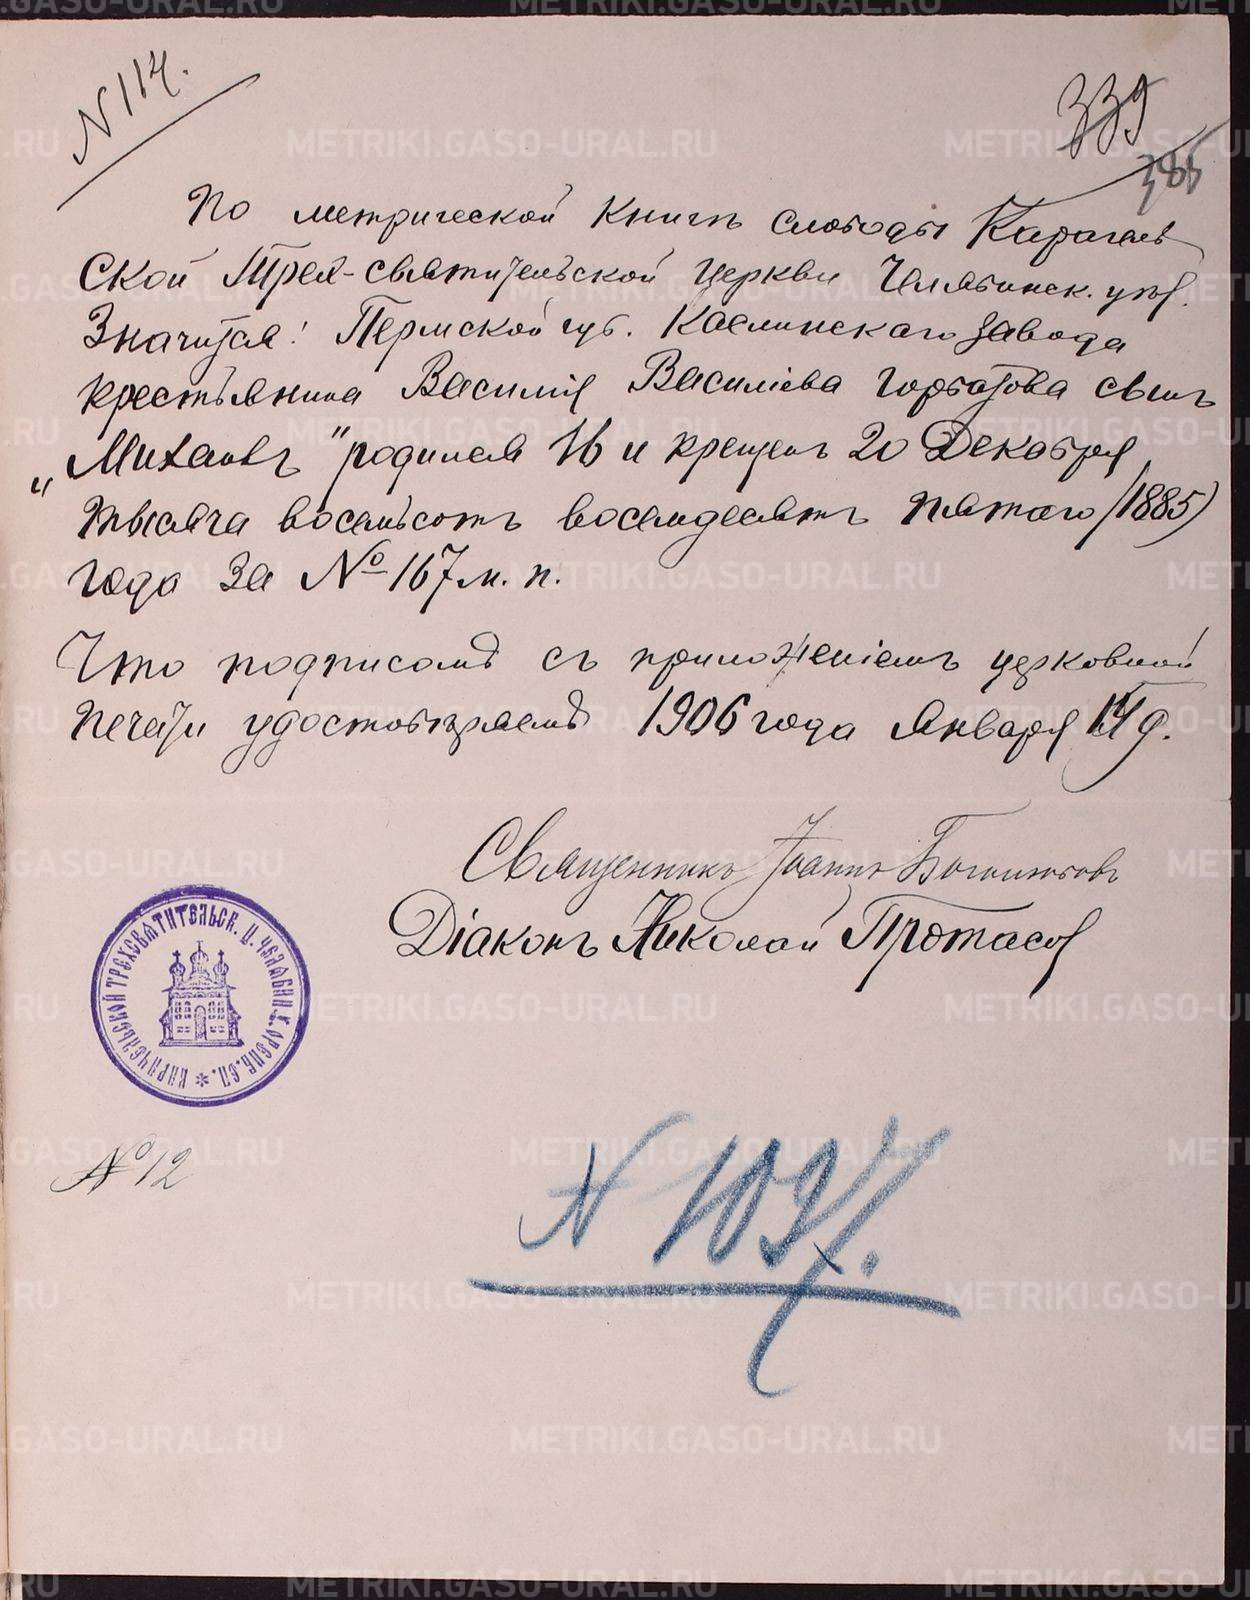 № 114.
339
385
По метрической книгѣ слободы Карачель
ской Трех-святительской церкви Челябинск. уѣз.
Значится: Пермской губ. Каслинскаго завода
крестьянина Василія Василіева Горбатова сынъ
„Михаилъ" родился 16 и крещенъ 20 Декабря
тысяча восемьсотъ восемдесятъ пятаго (1885)
года за № 167 м. п.
Что подписомъ съ приложеніемъ церковной
печати удостовѣряемъ 1906 года Января 14 д.
Священникъ Іоаннъ
Діаконъ Николай Протасов
КАРАЧЕЛЬСКОЙ ТРЕХСВЯТИТЕЛЬСК. Ц. ЧЕЛЯБИН. У. ОРЕНБ. ЕП.
№ 12
N 1037.
METRIKI.GASO-URAL.RU